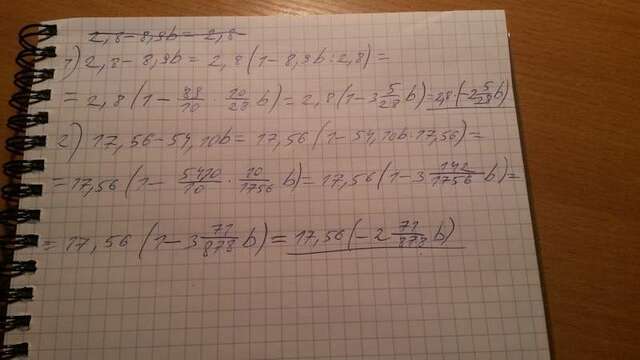 2,8-8,9b=2,8
1) 2,8-8,9b=2,8(1-8,9b:2,8)=
=2,8(1-89/10 10/28 b)=2,8(1-3 5/28 b)=2,8·(-2 5/28 b)
2) 17,56-54,10b=17,56(1-54,10b:17,56)=
=17,56(1-5410/10·10/1756 b)=17,56(1-3 142/1756 b)=
=17,56(1-3 71/878 b)=17,56(-2 71/878 b)